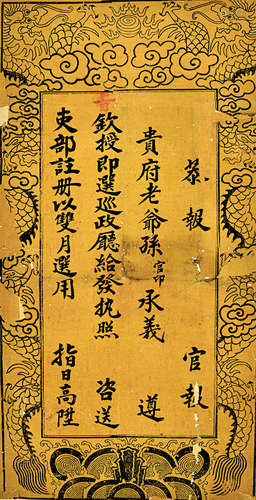 恭報 官報
貴府老爺孫官印承義 遵
欽授即選巡政廳給發执照 咨送
吏部註册以雙月選用 指日高陞